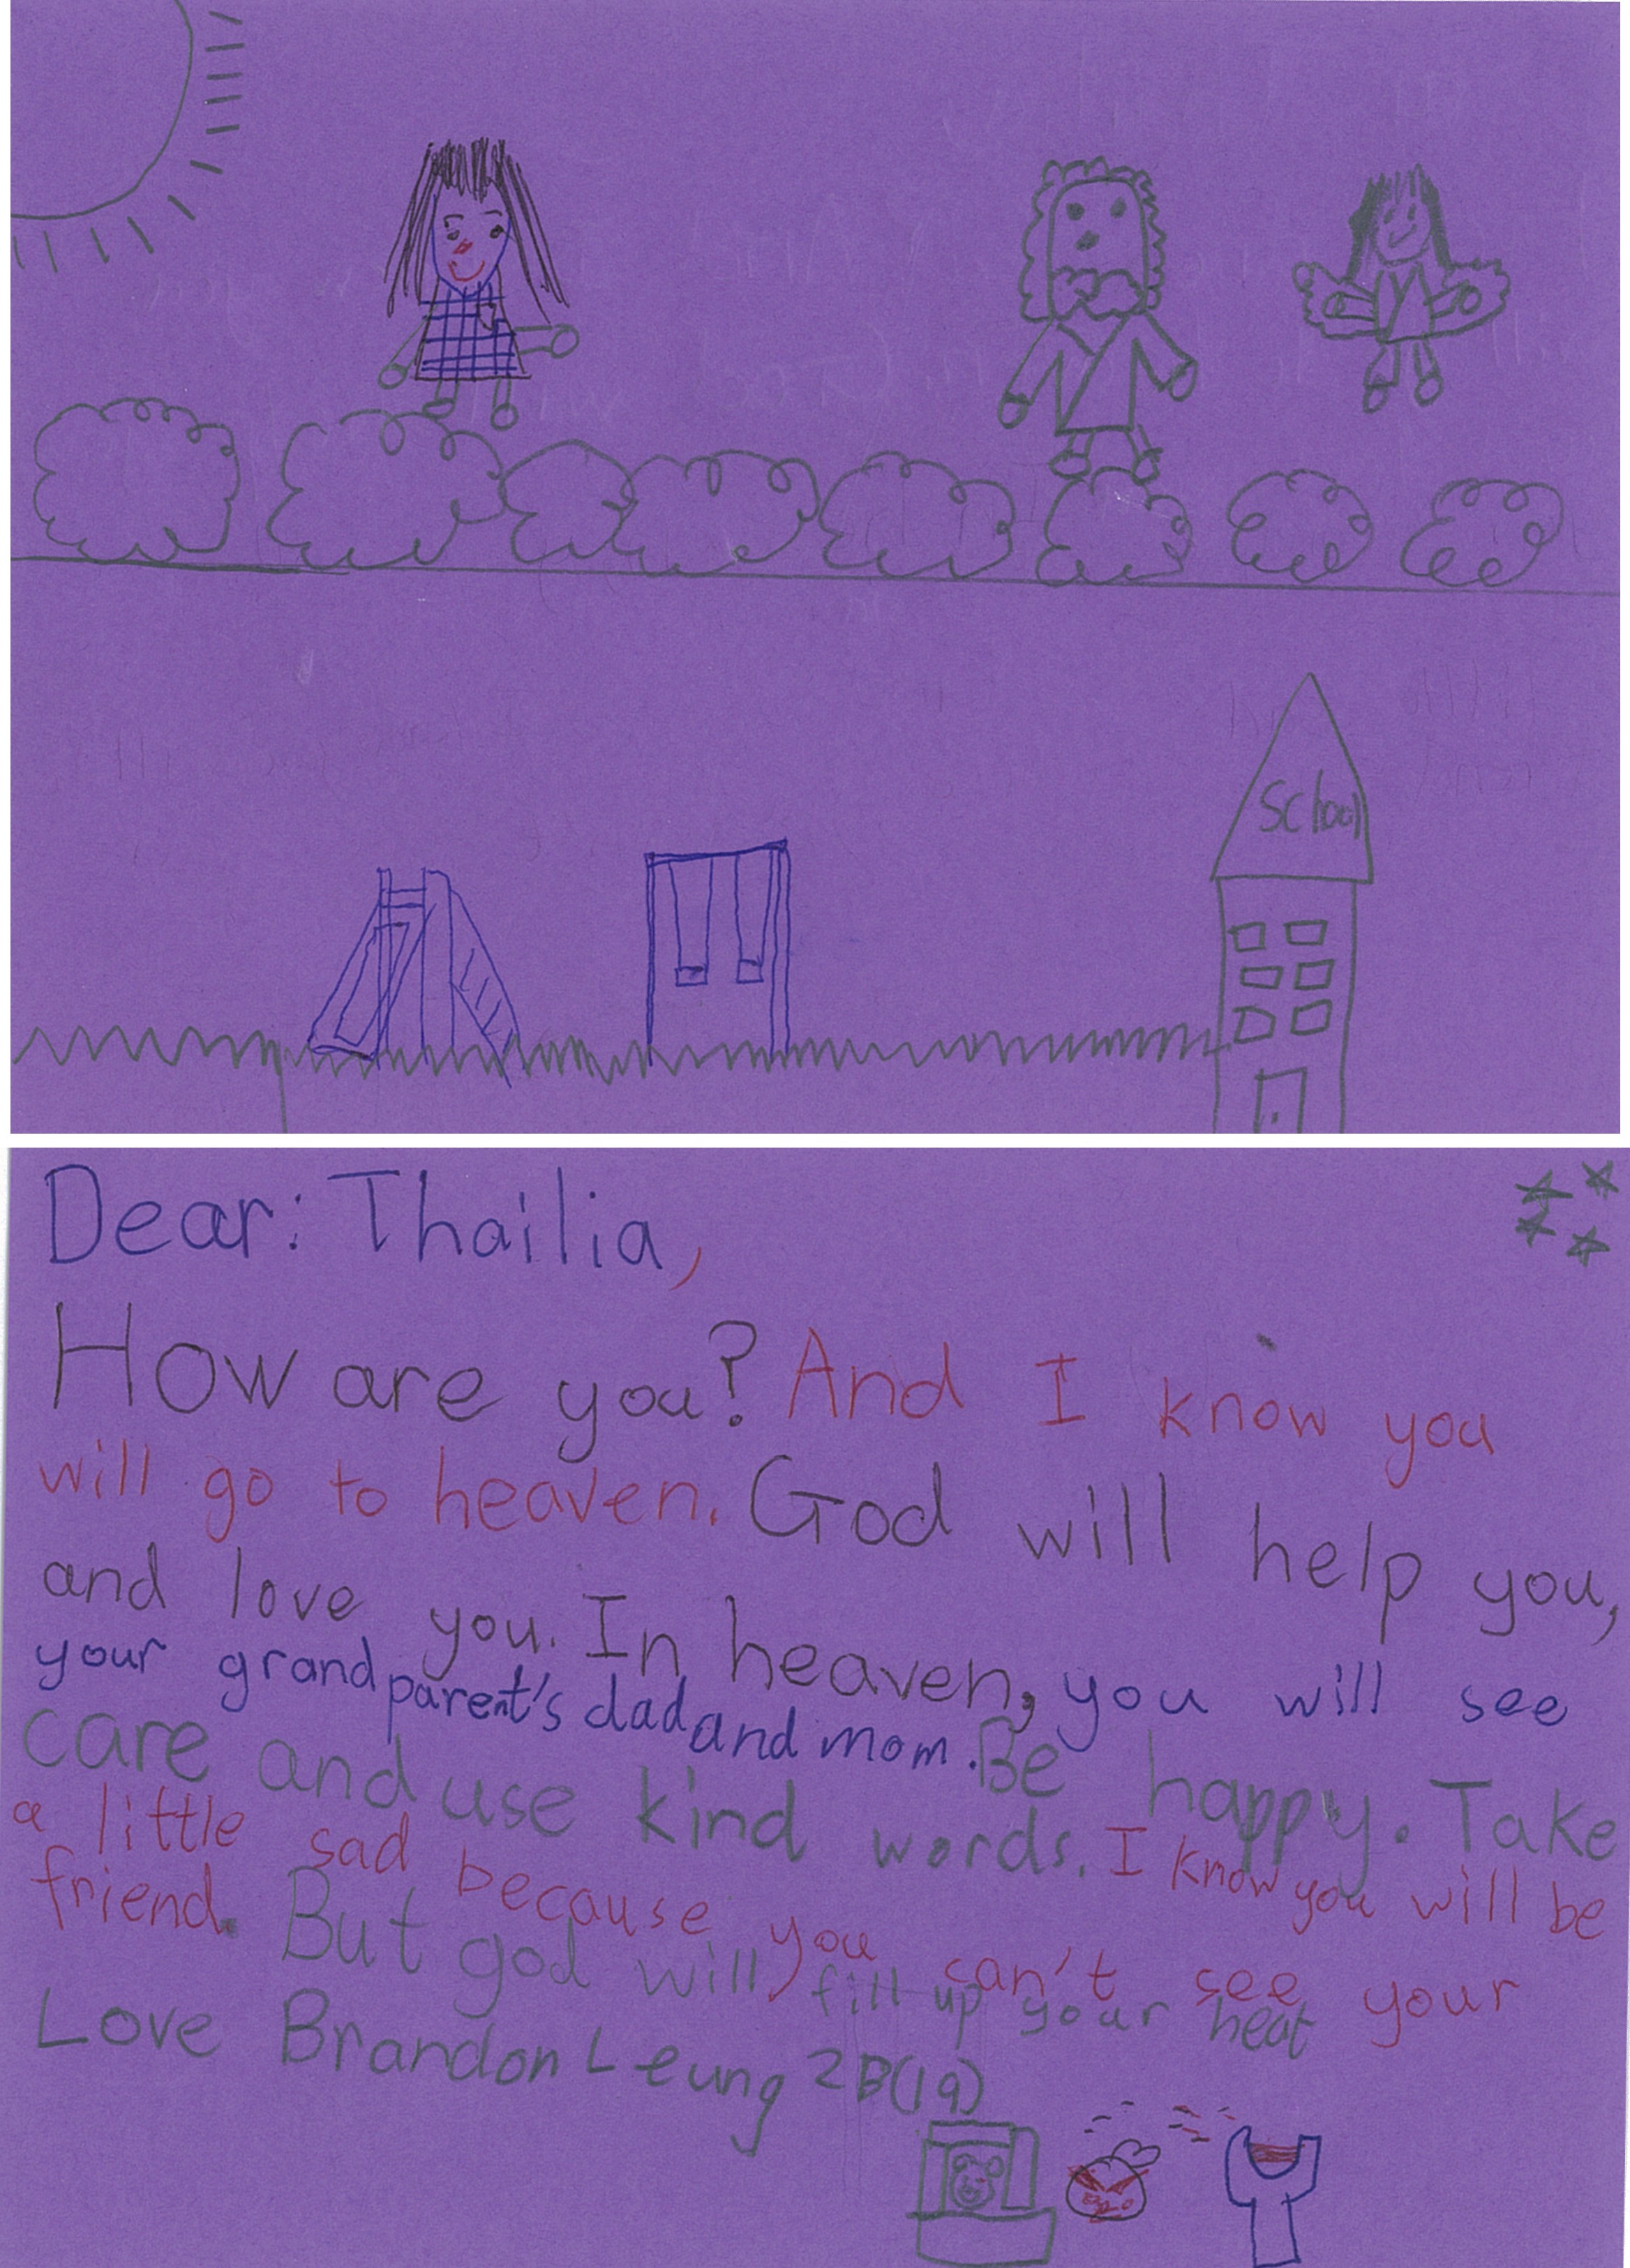 School
Dear: Thailia,
How are you? And I know you
will go to heaven. God will help you,
and love you. In heaven, you will see
your grandparent's dad and mom. Be happy. Take
care and use kind words. I know you will be
a little sad because you can't see your
friend. But god will fill up your heat
Love Brandon Leung 2B(19)